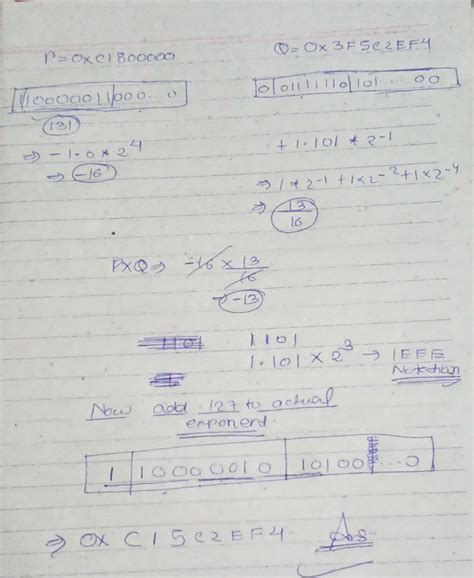 P = 0xC1800000
Q = 0x3F5C2EF4
1 10000011 000...0
0 01111110 101...00
131
⇒ -1.0 * 2^4
+ 1.101 * 2^-1
⇒ -16
⇒ 1*2^-1 + 1x2^-2 + 1x2^-4
⇒ 13/16
PxQ ⇒ -16 x 13/16
⇒ -13
1101
1.101 x 2^3 → IEEE
Notation
Now add 127 to actual
exponent.
1 10000010 10100...0
⇒ 0xC15C2EF4 As